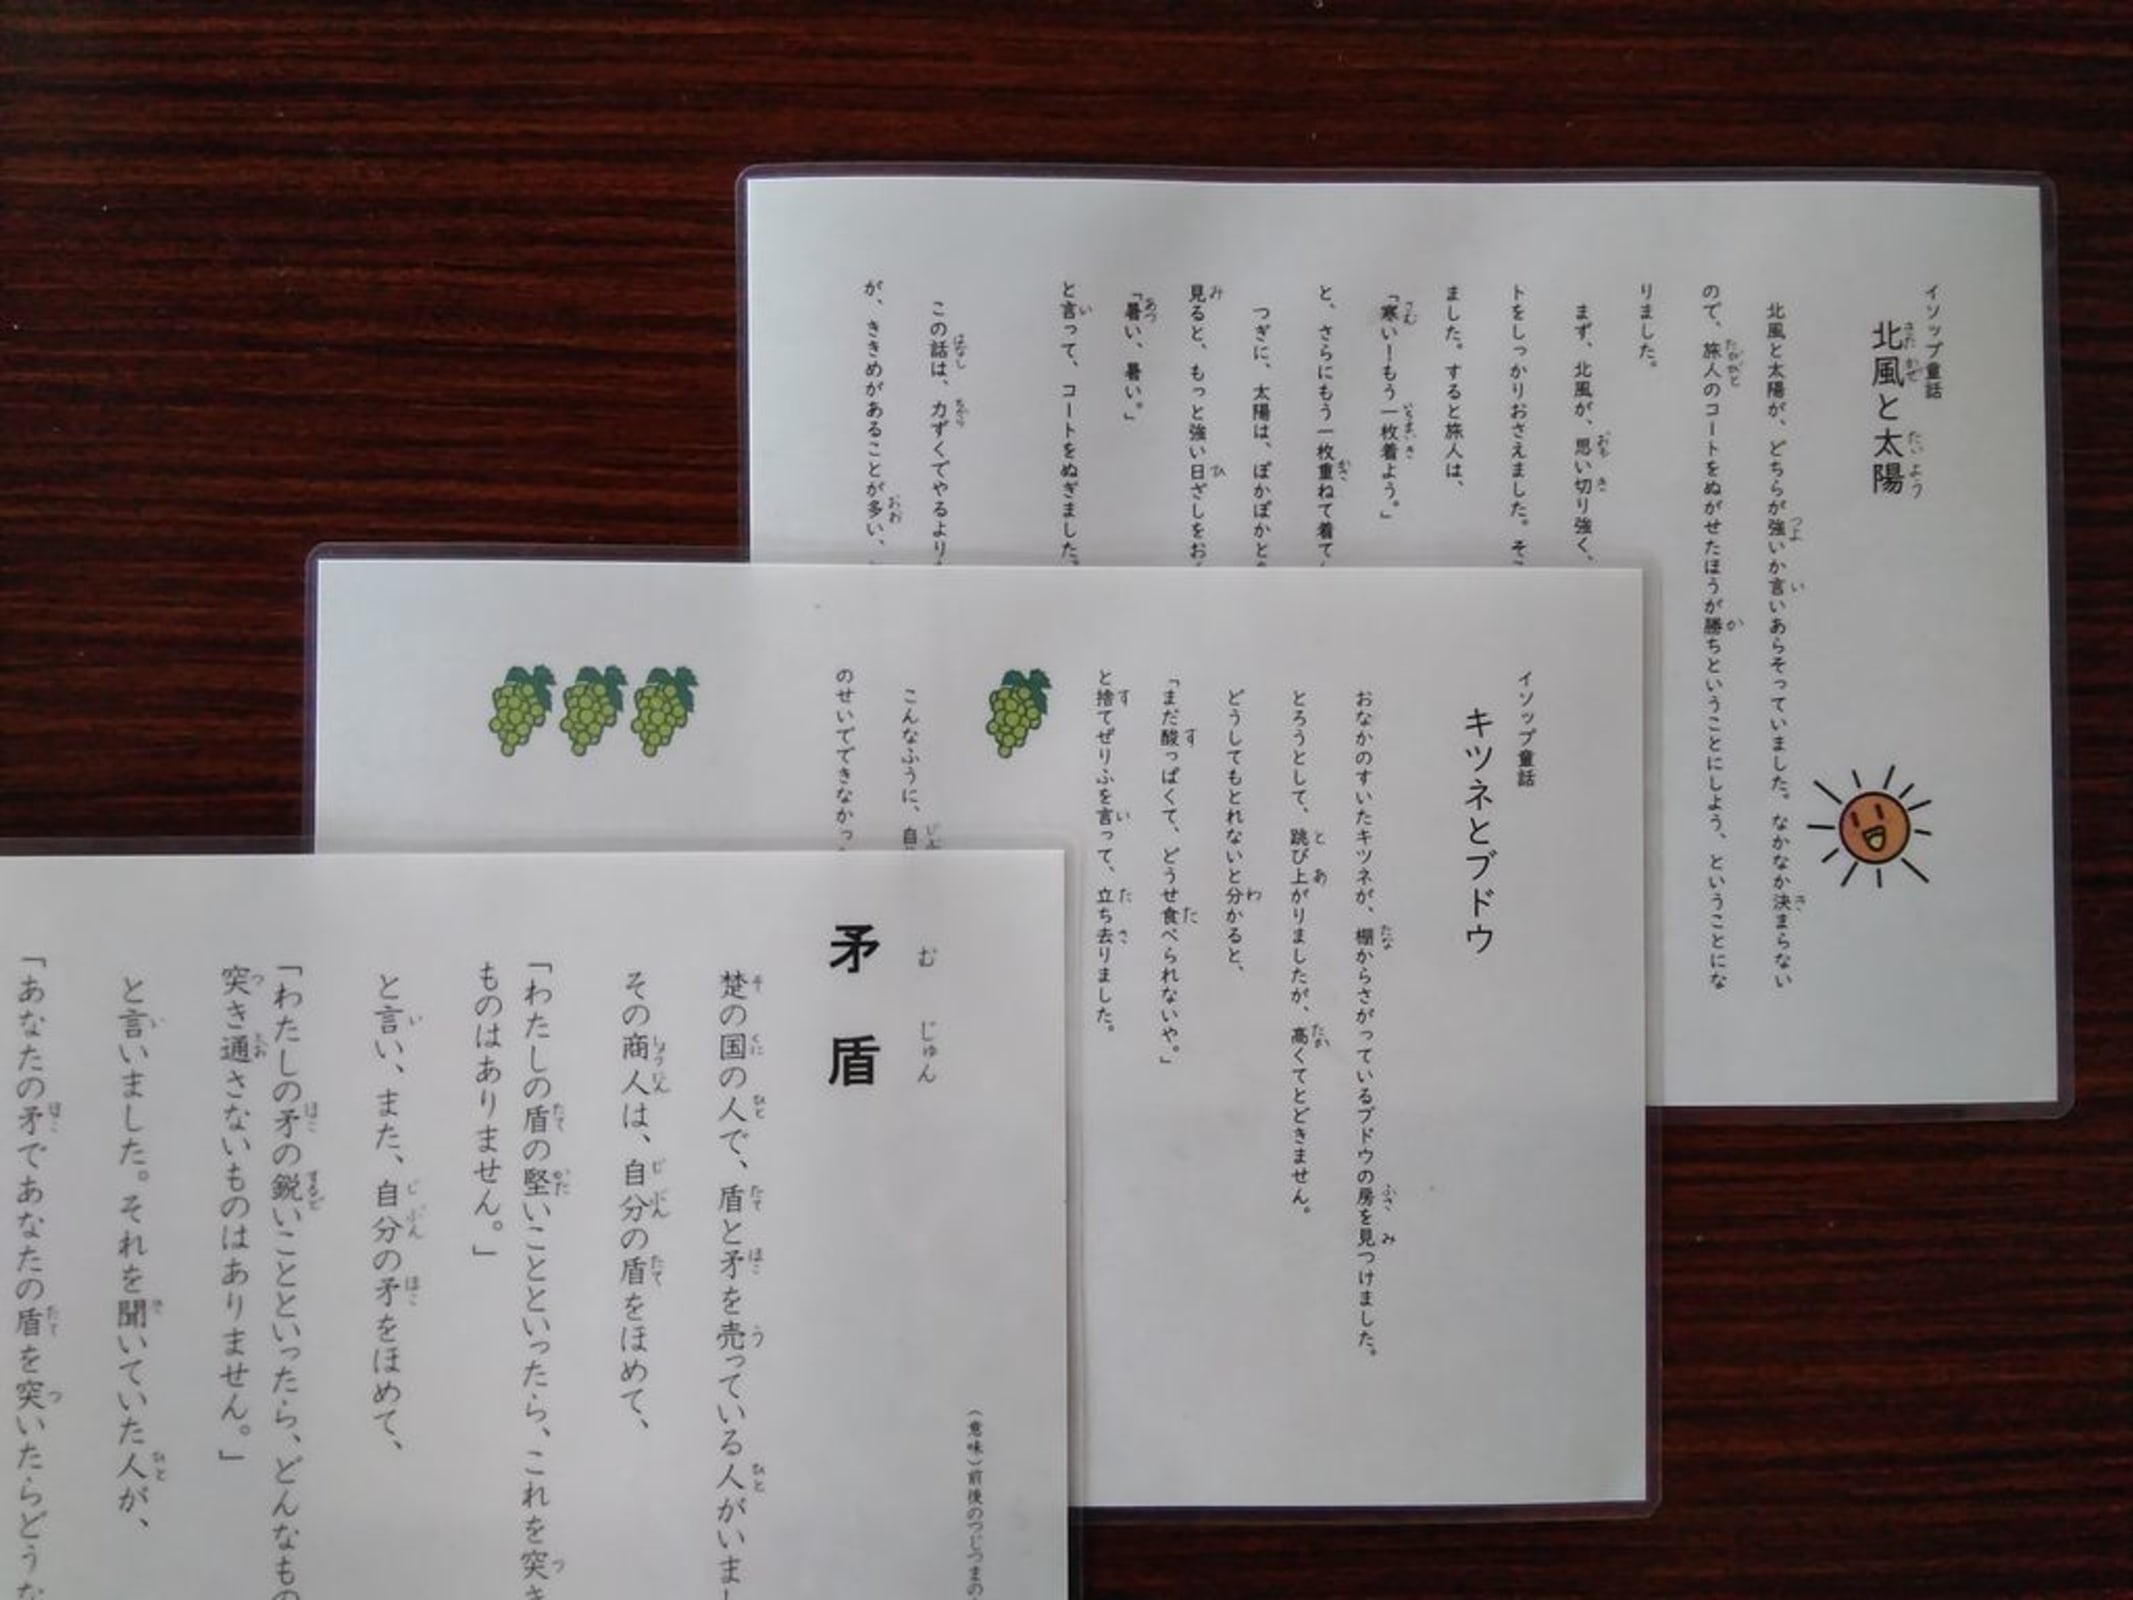 イソップ童話
北風と太陽
北風と太陽が、どちらが強いか言いあらそっていました。なかなか決まらない
ので、旅人のコートをぬがせたほうが勝ちということにしよう、ということにな
りました。
まず、北風が、思い切り強く、
トをしっかりおさえました。そ
ました。すると旅人は、
「寒い!もう一枚着よう。」
と、さらにもう一枚重ねて着て
つぎに、太陽は、ぽかぽかと
見ると、もっと強い日ざしをお
「暑い、暑い。」
と言って、コートをぬぎました。
この話は、力ずくでやるより
が、ききめがあることが多い、
イソップ童話
キツネとブドウ
おなかのすいたキツネが、棚からさがっているブドウの房を見つけました。
とろうとして、跳び上がりましたが、高くてとどきません。
どうしてもとれないと分かると、
「まだ酸っぱくて、どうせ食べられないや。」
と捨てぜりふを言って、立ち去りました。
こんなふうに、自
のせいでできなかっ
(意味)前後のつじつまの
むじゅん
矛盾
楚の国の人で、盾と矛を売っている人がいまし
その商人は、自分の盾をほめて、
「わたしの盾の堅いことといったら、これを突き
ものはありません。」
と言い、また、自分の矛をほめて、
「わたしの矛の鋭いことといったら、どんなもの
突き通さないものはありません。」
と言いました。それを聞いていた人が、
「あなたの矛であなたの盾を突いたらどうな